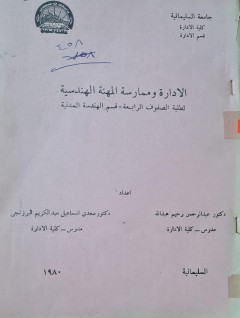 جامعة السليمانية
كلية الادارة
قسم الادارة
الادارة وممارسة المهنة الهندسية
لطلبة الصفوف الرابعة - قسم الهندسة المدنية
اعداد
دكتور عبدالرحمن رحيم عبدالله
مدرس - كلية الادارة
دكتور سعدي اسماعيل عبدالكريم البرزنجي
مدرس - كلية الادارة
السليمانية
١٩٨٠